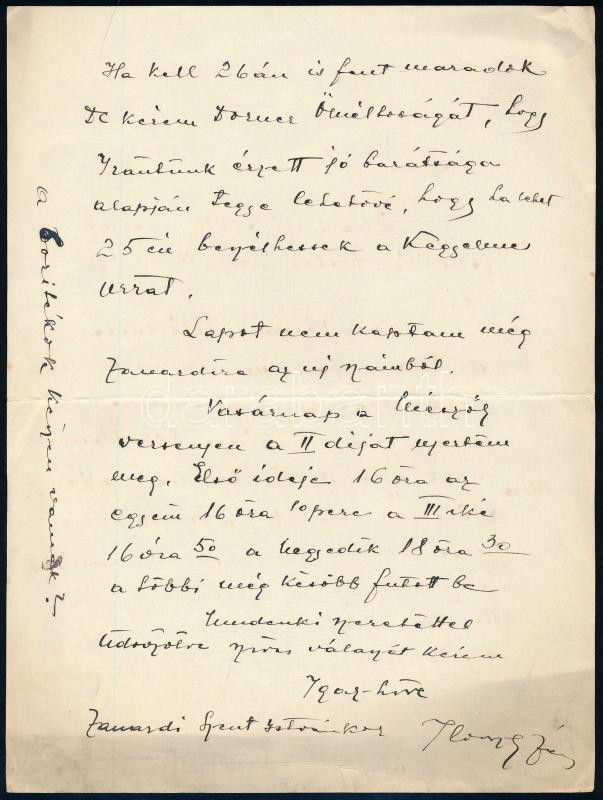 Ha kell 26án is fent maradok
De kérem Dorner Őméltóságát, hogy
Irántunk érzett jó barátsága
alapján tegye lehetővé, hogy ha lehet
25én beszélhessek a Kegyelmes
Urral.
Lapot nem kaptam még
Zamardira az uj számból.
Vasárnap a
versenyen a II dijat nyertem
meg. Első ideje 16 óra az
enyém 16 óra 10 perc a III iké
16 óra 50 a negyedik 18 óra 30
a többi még később futott be
Mindenki szeretettel
üdvözölve szives válaszát kérem
Igaz hive
Zamardi Szent Istvánkor
a boritékok készen vannak?
darabanth